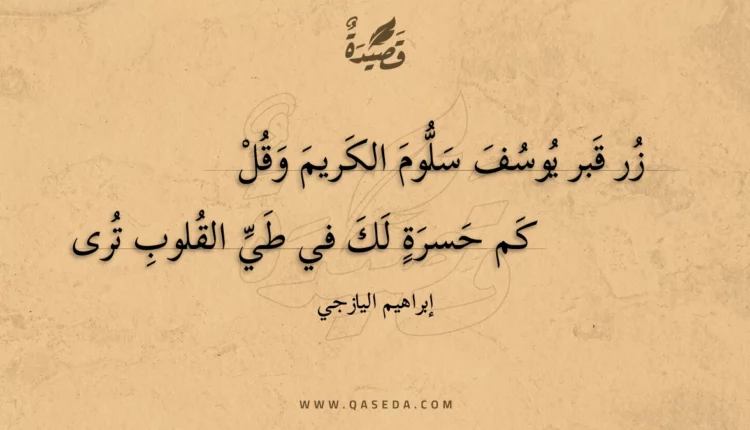 قَصِيدَةٌ
زُر قَبر يُوسُفَ سَلُّومَ الكَريمَ وَقُلْ
كَم حَسرَةٍ لَكَ في طَيِّ القُلوبِ تُرى
إبراهيم اليازجي
WWW.QASEDA.COM